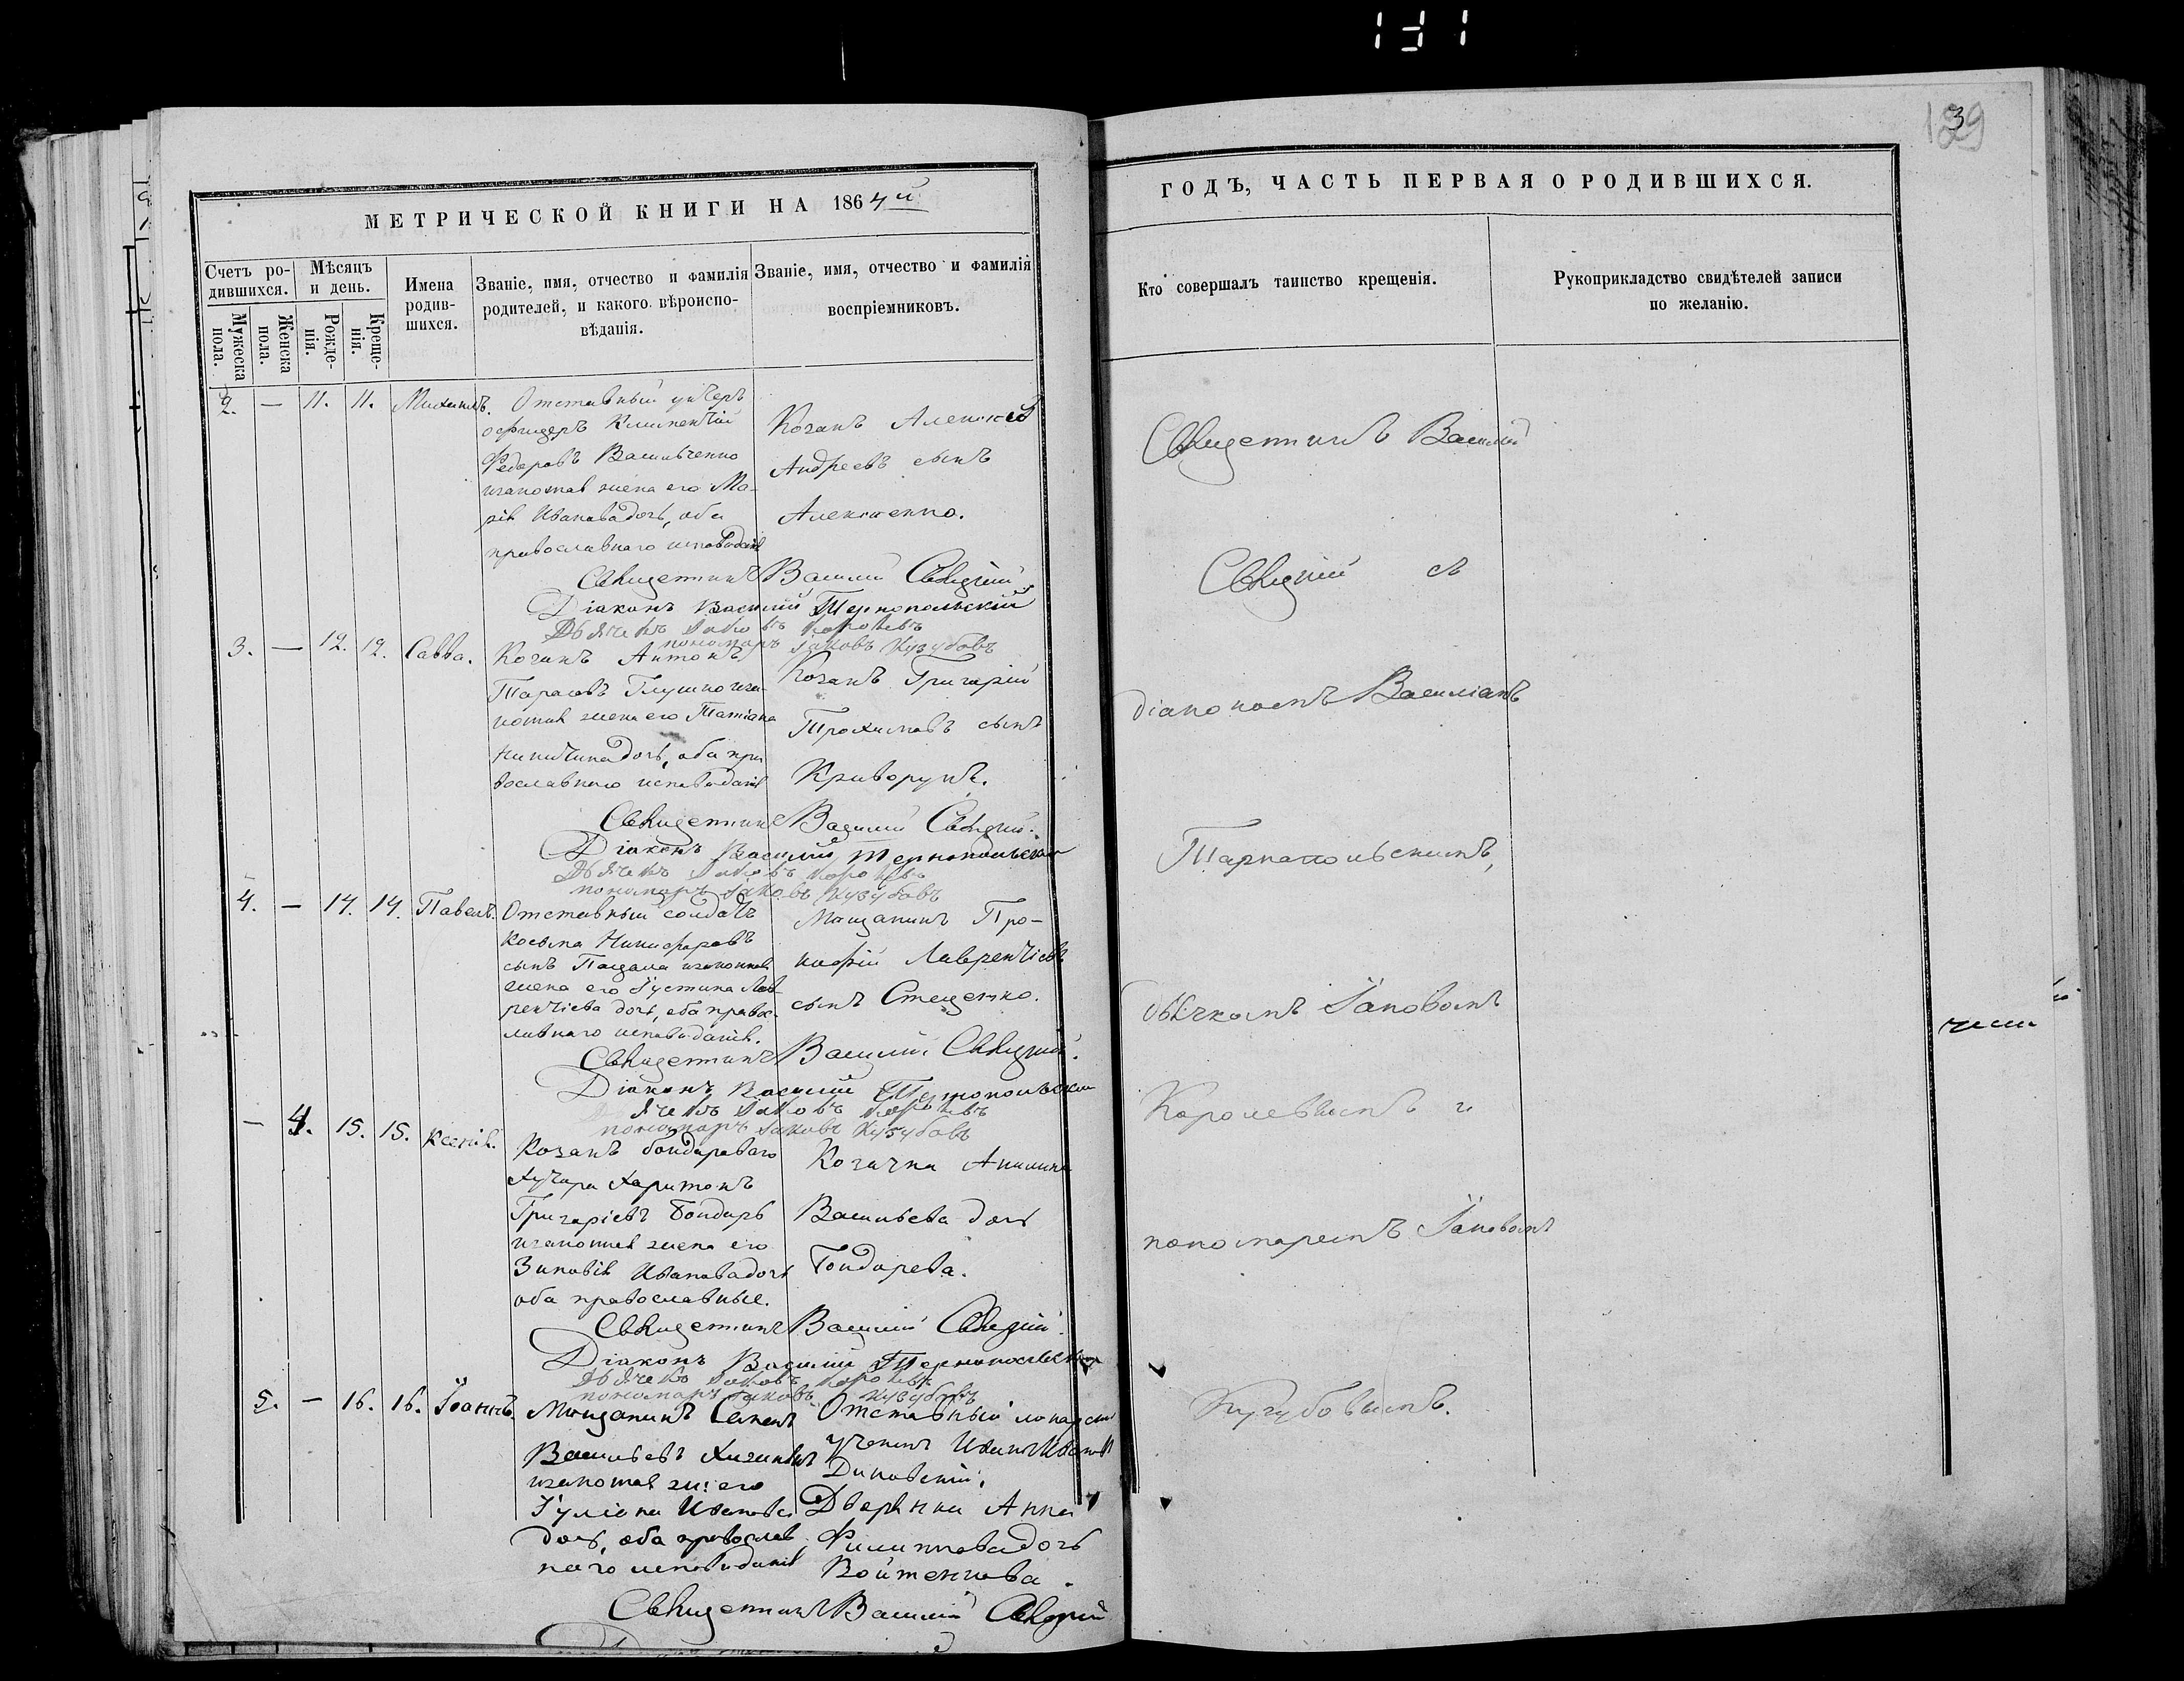 139
МЕТРИЧЕСКОЙ КНИГИ НА 1864й
Счетъ ро-
дившихся.
Мужеска пола.
Женска пола.
Мѣсяцъ
и день.
Рожде-
нія.
Креще-
нія.
Имена
родив-
шихся.
Званіе, имя, отчество и фамилія
родителей, и какого вѣроиспо-
вѣданія.
Званіе, имя, отчество и фамилія
воспріемниковъ.
2. — 11. 11. Михаилъ.
Отставный унтеръ
офицеръ Климентій
Федоровъ Васильченко
законная жена его Ма-
рія Иванова дочь, оба
православнаго исповѣданія
Козакъ Алексѣй
Андреевъ сынъ
Алексѣенко.
Священникъ Василій Свѣцкій
Діаконъ Василій Тернопольскій
Дьячекъ Іаковъ Королевъ
пономарь Іаковъ Кузубовъ
3. — 12. 12. Савва.
Козакъ Антонъ
Тарасовъ Глушко зак-
онная жена его Татіана
Никитина дочь, оба пра
вославнаго исповѣданія
Козакъ Григорій
Трохимовъ сынъ
Криворукъ.
Священникъ Василій Свѣцкій.
Діаконъ Василій Тернопольскій
Дьячекъ Іаковъ Королевъ
пономарь Іаковъ Кузубовъ
4. — 14. 14. Павелъ.
Отставный солдатъ
Косьма Никифоровъ
сынъ законная
жена его Іустина Лав-
рентіева дочь, оба правос-
лавнаго исповѣданія.
Мѣщанинъ Про-
кофій Лаврентіевъ
сынъ Стеценко.
Священникъ Василій Свѣцкій.
Діаконъ Василій Тернопольскій
Дьячекъ Іаковъ Королевъ
пономарь Іаковъ Кузубовъ
— 4. 15. 15. Ксенія.
Козакъ Бондарваго
хутора Харитонъ
Григоріевъ Бондарь
законная жена его
Зиновія Иванова дочь
оба православные.
Козачка Акилина
Васильева дочь
Бондарева.
Священникъ Василій Свѣцкій.
Діаконъ Василій Тернопольскій
Дьячекъ Іаковъ Королевъ
пономарь Іаковъ Кузубовъ
5. — 16. 16. Іоаннъ.
Мѣщанинъ Семенъ
Васильевъ
законная же: его
Іуліана Иванова
дочь, оба православ
наго исповѣданія
Отставный лекарскій
ученикъ Иванъ Ивановъ
Диковскій,
Дворянка Анна
Филиппова дочь
Войтенкова.
Священникъ Василій Свѣцкій
ГОДЪ, ЧАСТЬ ПЕРВАЯ О РОДИВШИХСЯ.
Кто совершалъ таинство крещенія.
Рукоприкладство свидѣтелей записи
по желанію.
Священникъ Василій
Свѣцкій съ
діакономъ Василіемъ
Тарнапольскимъ,
дьячкомъ Іаковомъ
Королевымъ и
пономаремъ Іаковомъ
Кузубовымъ.